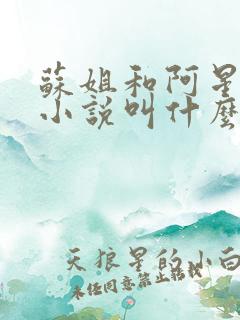 蘇姐和阿星
小說叫什麼
天狼星的小白
未經同意禁止轉載